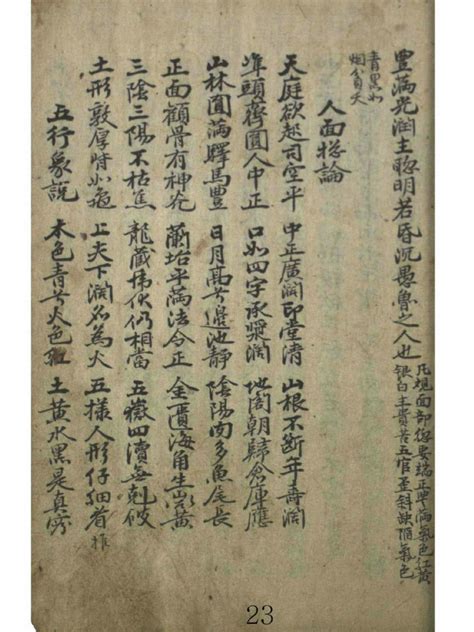 豐滿光潤主聰明若昏沉愚魯之人也
凡規面部你要端正平滿氣色紅黃
銀白主貴若五官歪斜缺陷氣色
青黑如
烟貧夭
人面捴論
天庭欲起司空平 中正廣潤印堂清 山根不断年壽潤
準頭齊圓人中正 口如四字承漿闊 地閣朝歸倉庫應
山林圓滿驛馬豐 日月高兮邊池靜 陰陽肉多魚尾長
正面顴骨有神光 蘭台平滿法令正 金匱海角生黃
三陰三陽不枯焦 龍藏虎伏仍相當 五嶽四瀆無剋破
土形敦厚背如龜 上尖下濶名為火 五樣人形仔細看推
五行象說 木色青兮火色紅 土黃水黑是真
23